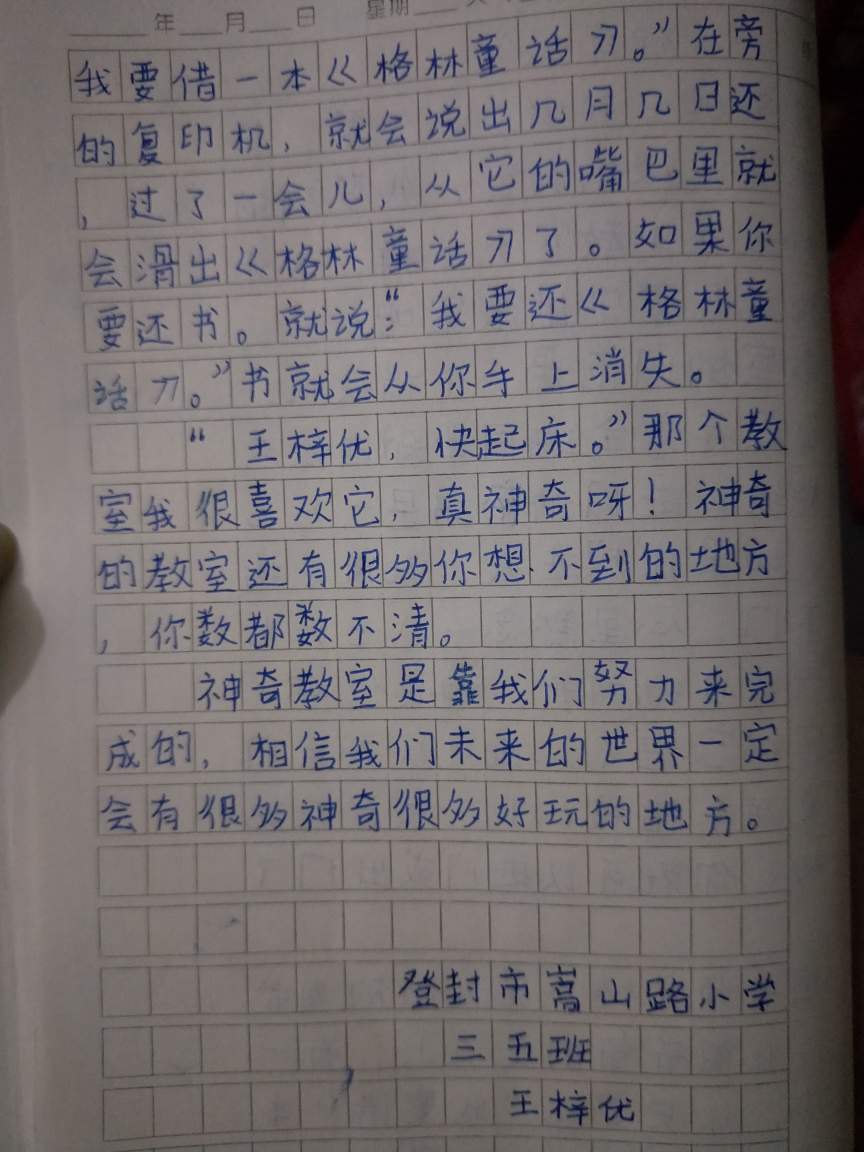 年 月 日 星期
我要借一本《格林童话》。”在旁
的复印机，就会说出几月几日还
，过了一会儿，从它的嘴巴里就
会滑出《格林童话》了。如果你
要还书。就说：“我要还《格林童
话》。”书就会从你手上消失。
“王梓优，快起床。”那个教
室我很喜欢它，真神奇呀！神奇
的教室还有很多你想不到的地方
，你数都数不清。
神奇教室是靠我们努力来完
成的，相信我们未来的世界一定
会有很多神奇很多好玩的地方。
登封市嵩山路小学
三五班
王梓优